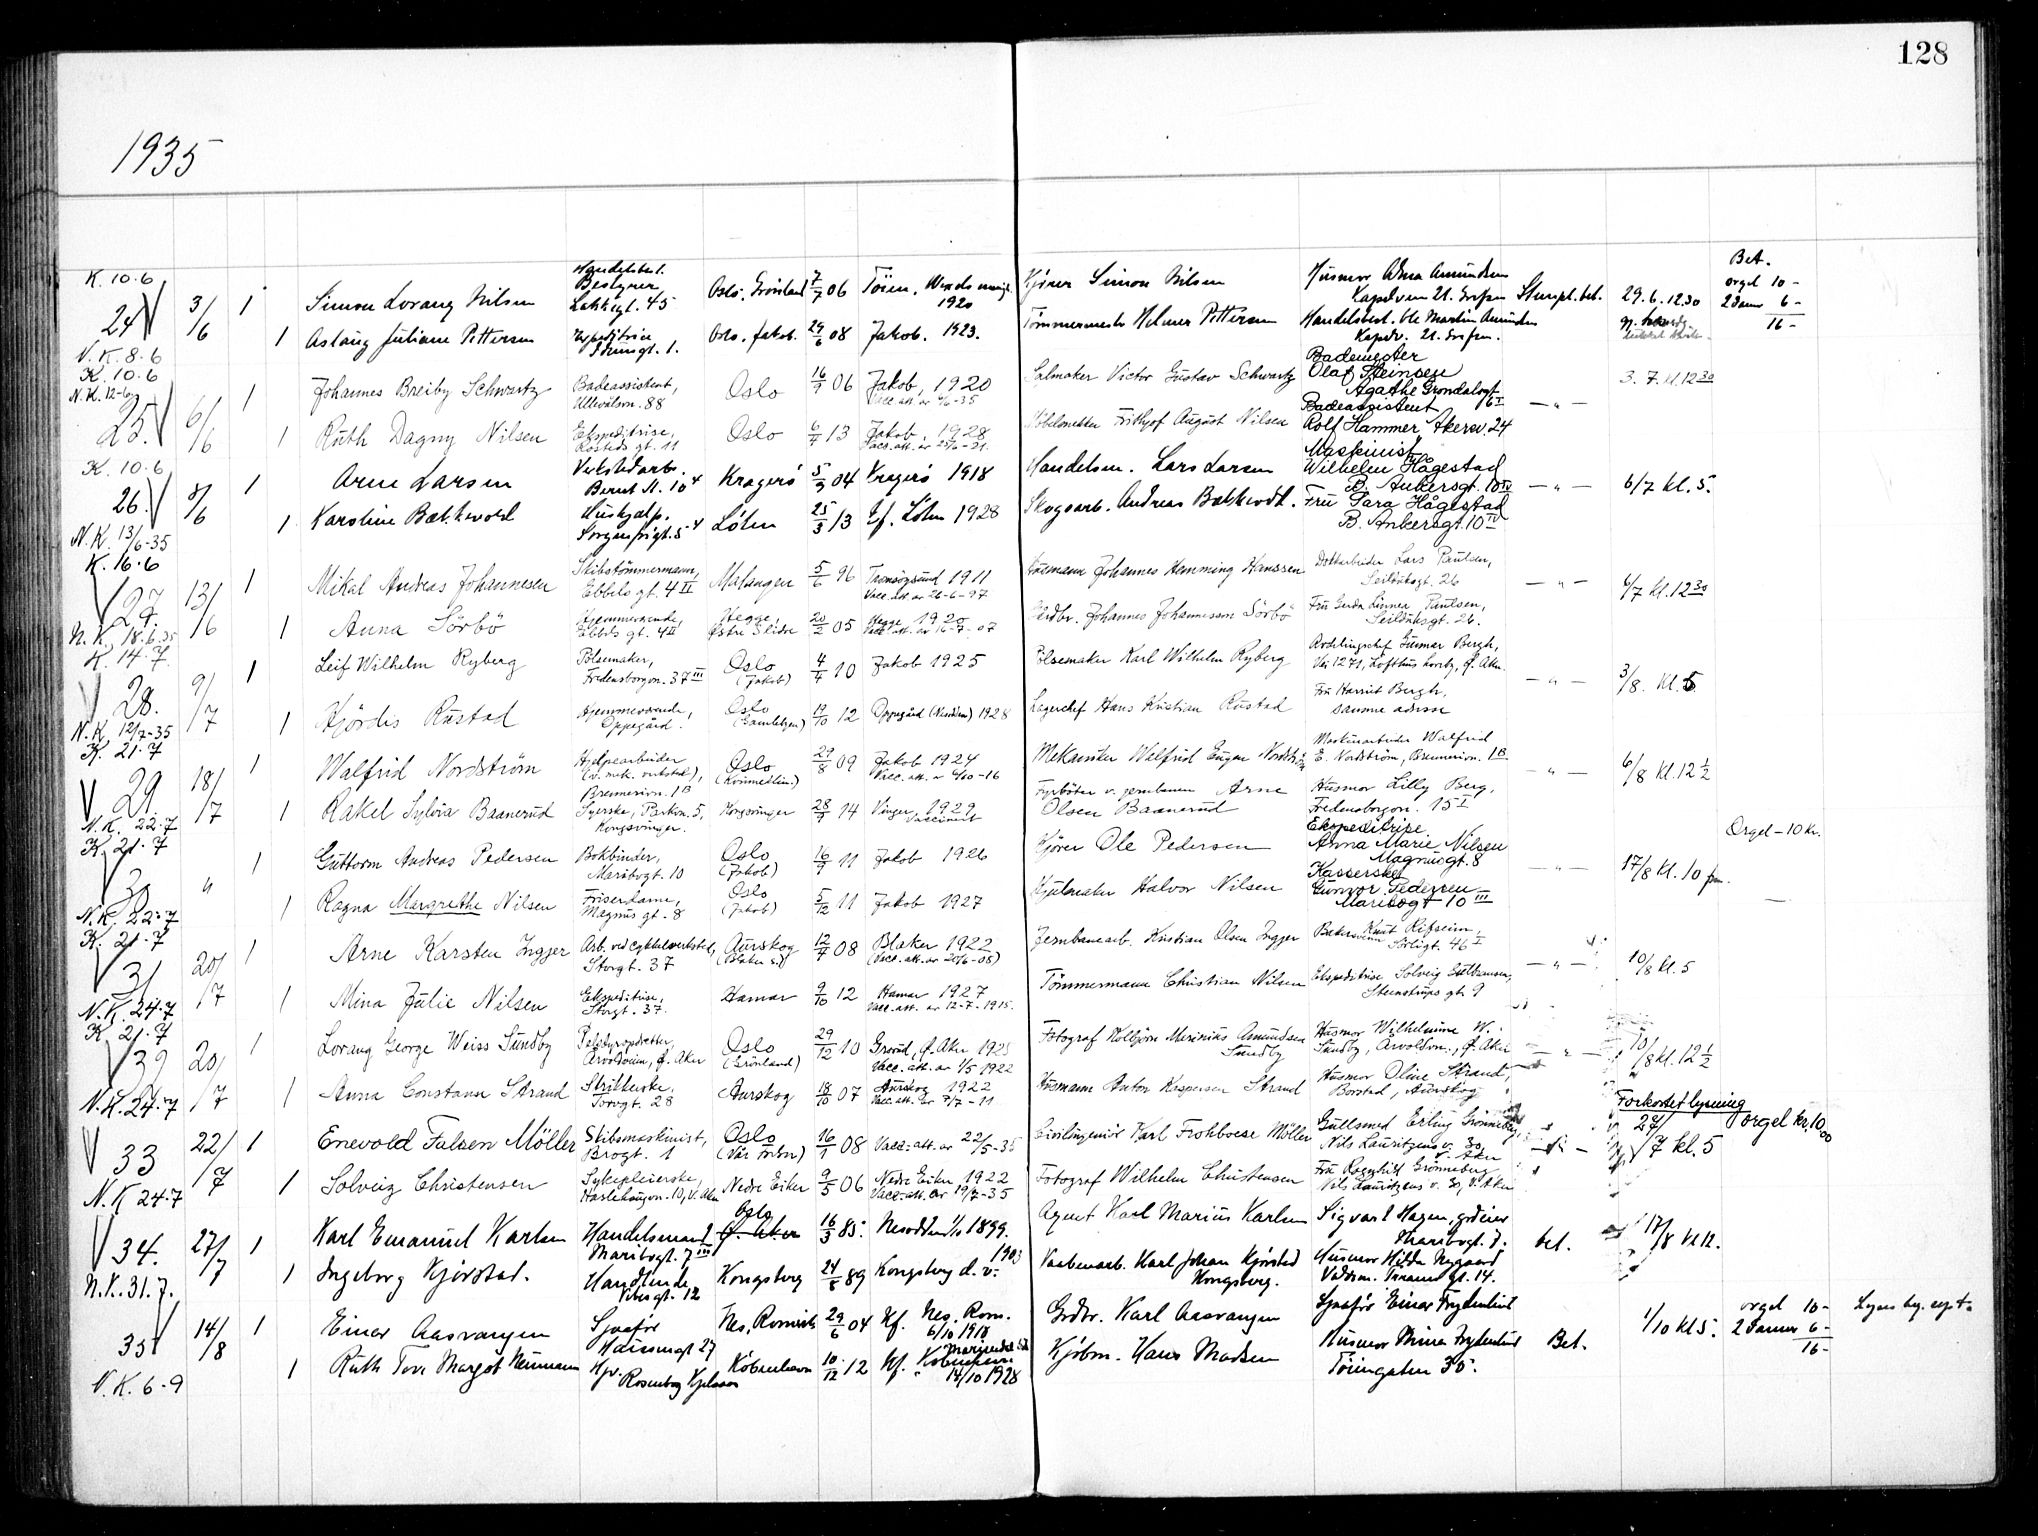 128
1935
K. 10.6
24 3/6 1 Simon Lorang Nilsen Handelsbest. Bestyrer Lakkegt. 45 Oslo, Grønland 7/7 06 Tøien, 1920 Kjører Simon Nilsen Husmor Alma Amundsen Kapelveien 21. Stempl. bet. 29.6.12.30 Bet. orgel 10- 2 Sanner 6- 16-
1 Aslaug Juliane Pettersen Expeditrise Idunsgt. 1. Oslo, Jakob. 29/6 08 Jakob. 1923. Tømmermester Helmer Pettersen Handelsbest. Ole Martin Amundsen Kapelv. 21.
N.K. 8.6
K. 10.6
N.K. 12-6
25. 6/6 1 Johannes Breiby Schwartz Badeassistent, Ullevålsvn. 88 Oslo 16/9 06 Jakob, 1920 Vacc. att. av 4/6-35 Salmaker Victor Gustav Schwartz Bademester Olaf Steinsen Agathe Grøndalsgt. 6 I — " — 3. 7. kl. 12 30
1 Ruth Dagny Nilsen Ekspeditrise, Rosteds gt. 11 Oslo 6/7 13 Jakob, 1928 Møbelsnekker Frithjof August Nilsen Badeassistent Rolf Hammer Akersv. 24
K. 10.6
26. 8/6 1 Arne Larsen Verkstedarb. Bernt A. 10 4 Kragerö 5/9 04 Kragerö 1918 Handelsm. Lars Larsen Maskinist Wilhelm Hågestad B. Ankersgt. 10 IV — " — 6/7 kl. 5.
1 Karoline Bækkevold Hushjelp. Sorgenfrigt. 5 4 Løten 25/3 13 Kf. Löten 1928 Skogsarb. Andreas Bækkevold. Fru Sara Hågestad B. Ankersgt. 10 IV
N.K. 13/6-35
K. 16.6
27. 13/6 1 Mikal Andreas Johannesen Skibstömmermann, Ebbels gt. 4 II Malangen 5/6 96 Tromsøysund 1911 Vacc. att. av 26-6-97 Husmann Johannes Hemming Hanssen Dokkarbeider Lars Paulsen, Seilduksgt. 26 — " — 6/7 kl. 12 30
1 Anna Sörbö Hjemmeværende, Ebbels gt. 4 II Hegge, Østre Slidre 20/2 05 Hegge 1920 Vacc. att. av 16-7-07 Gårdbr. Johannes Johannessen Sörbö Fru Gerda Linnea Paulsen, Seilduksgt. 26.
N.K. 18.6.35
K. 14.7.
28. 9/7 1 Leif Wilhelm Ryberg Pölsemaker, Fredensborgvn. 37 III Oslo (Jakob) 4/4 10 Jakob 1925 Pölsemaker Karl Wilhelm Ryberg Avdelingschef Gunnar Bergh, Vei 1271, Lofthus Haveby, Ø. Aker — " — 3/8. kl. 5
1 Hjördis Rustad Hjemmeværende, Oppegård. Oslo (Gamlebyen) 19/10 12 Oppegård (Nesodden) 1928 Lagerchef Hans Kristian Rustad Fru Harriet Bergh, samme adresse
N.K. 12/7-35
K. 21.7
29. 18/7 1 Walfrid Nordström Hjelpearbeider (v. mek. verksted), Brenneriv. 1 B Oslo 29/8 09 Jakob 1924 Vacc. att. av 6/10-16 Mekaniker Welfrid Eugen Nordström Maskinarbeider Walfrid E. Nordström, Brennerivn. 1 B — " — 6/8 kl. 12 ½
1 Rakel Sylvia Baanerud Syerske, Parkvn. 5, Kongsvinger. Kongsvinger 28/9 14 Vinger, 1929 Vaccinert Fyrbøter v. jernbanen Arne Olsen Baanerud Husmor Lilly Berg, Fredensborgvn. 15 I
N.K. 22.7
K. 21.7
30 " 1 Guttorm Andreas Pedersen Bokbinder, Maribogt. 10 Oslo (Jakob) 16/9 11 Jakob 1926 Kjører Ole Pedersen Ekspeditrise Anna Marie Nilsen Magnusgt. 8 — " — 17/8 kl. 10 fm. Orgel - 10 kr.
1 Ragna Margrethe Nilsen Friserdame, Magnus gt. 8 Oslo (Jakob) 5/12 11 Jakob 1927 Hjulmaker Halvor Nilsen Kasserske Gunvor Pedersen Maribogt 10 III —
N.K. 22.7
K. 21.7
31 20/7 1 Arne Karsten Ingjer Arb. ved cykkelverksted, Storgt. 37 Aurskog (Blaker s.) 12/7 08 Blaker 1922 (Vacc. att. av 20/6-08) Jernbanearb. Kristian Olsen Ingjer Bakersvenn Knut Rifseim, Sörligt. 46 I — " — 10/8 kl. 5
1 Mina Julie Nilsen Ekspeditrise, Storgt. 37. Hamar 9/10 12 Hamar 1927 Vacc. att. av 12-7-1915. Tömmermann Christian Nilsen Ekspeditrise Solveig Steenstrups gt. 9
N.K. 24.7
K. 21.7
32 20/7 1 Lorang George Weiss Sundby Pelsdyropdretter, Arvollveien, Ø. Aker Oslo (Grönland) 29/12 10 Grorud, Ø. Aker 1925 Vacc. att. av 1/5 1922 Fotograf Kolbjörn Marinius Asmundsen Sundby Husmor Wilhelmine W. Sundby, Arvollvn., Ø. Aker — " — 10/8 kl. 12 ½
1 Anna Constance Strand Strikkerske, Torvgt. 28 Aurskog 18/10 07 Aurskog 1922 Vacc. att. av 7/7-11 Husmann Anton Kaspersen Strand Husmor Oline Strand, Borstad, Aurskog
N.K. 24.7
33 22/7 1 Enevold Falsen Möller Skibsmaskinist, Brogt. 1 Oslo (Vår Frelser) 16/1 08 Vacc. att. av 22/5-35 Civilingeniör Karl Frohboese Möller Gullsmed Erling Grönneberg, Nils Lauritzens v. 30, V. Aker — " — Forkortet lysning 27/7 kl. 5 Orgel kr. 10,00
1 Solveig Christensen Sykepleierske, Haslehaugvn. 10, V. Aker Nedre Eiker 9/5 06 Nedre Eiker, 1922 Vacc. att. av 19/7-35 Fotograf Wilhelm Christensen Fru Ragnhild Grönneberg Nils Lauritzens v. 30, V. Aker
N.K 24.7
34. 27/7 1 Karl Emanuel Karlsen Handelsmand Maribogt. 7 III Oslo Ø. Aker 16/3 85. Nesodden 1/10 1899. Agent Karl Marius Karlsen Sigvart Hagen, gårdeier Maribogt. 7. bet. 17/8 kl 12.
1 Ingeborg Kjörstad. Handlende, Vibesgt. 12 Kongsberg 24/8 89 Kongsberg d. v. 1903 Vaabenarb. Karl Johan Kjörstad Kongsberg. Husmor Hilda Nygaard Valdem. Thranes gt. 14.
N.K. 31.7.
35 14/8 1 Einar Aasvangen Sjåför Nes, Romerike 29/6 04 Kf. Nes, Rom. 6/10 1918 Grdbr. Karl Aasvangen Sjåför Einar Frydenlund Bet. 1/10 kl 5. orgel 10- 2 Sanner 6- 16-
1 Ruth Tove Margot Neumann Köbenhavn 10/12 12 Kf. Köbenhavn 14/10 1928 Kjöbm. Hans Madsen Husmor Minda Frydenlund Töiengaten 35.
N.K. 6-9